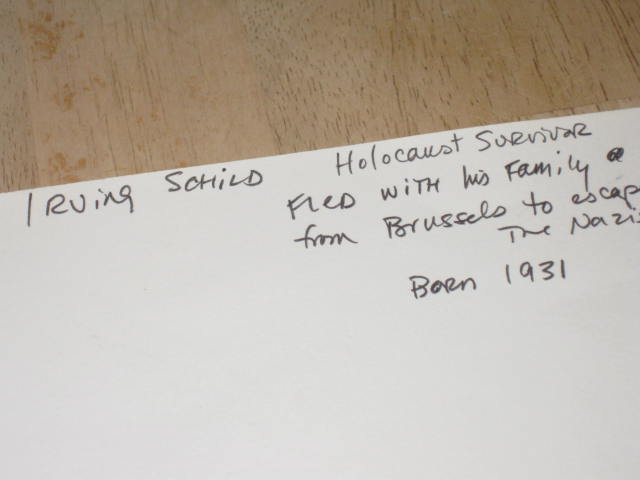 IRVING SCHILD
Holocaust Survivor
FLED WITH his Family
from Brussels to escap
The Nazis
Born 1931